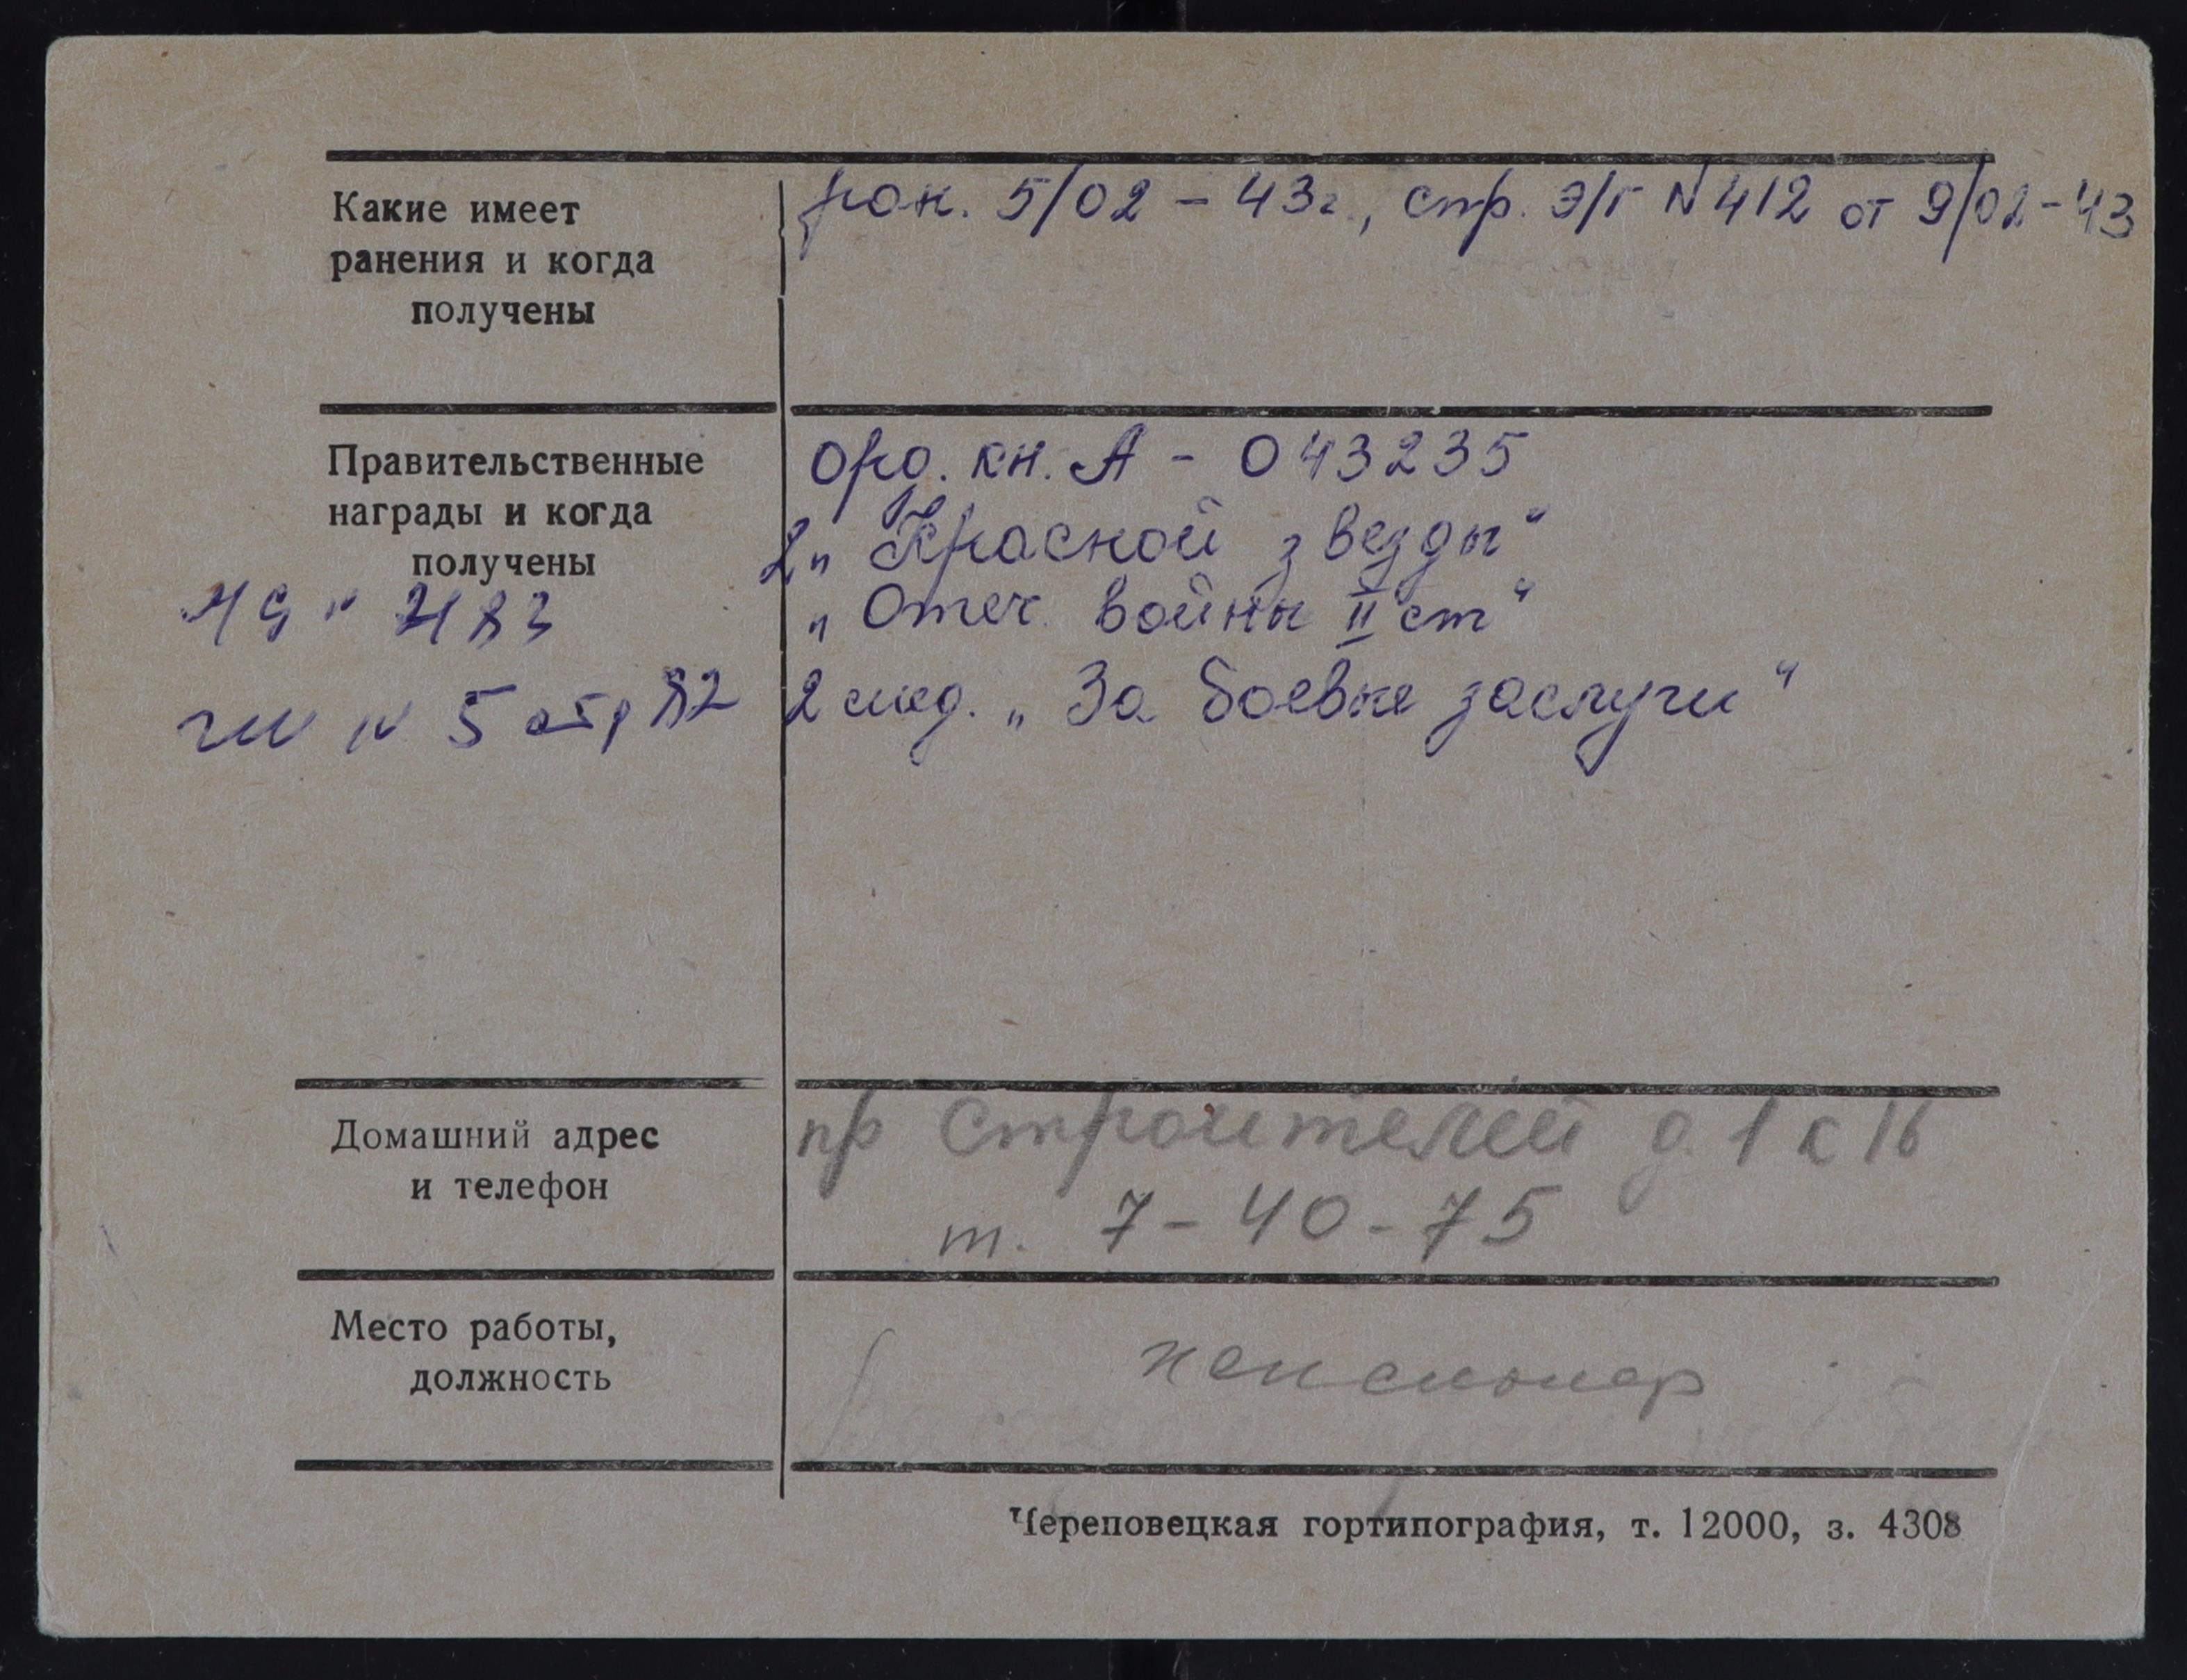 Какие имеет
ранения и когда
получены
ран. 5/02 – 43г., спр. Э/Г N 412 от 9/02-43
Правительственные
награды и когда
получены
орд. кн. А – 043235
2 „Красной звезды“
„Отеч. войны II ст“
2 мед. „За боевые заслуги“
N 5 82
Домашний адрес
и телефон
пр Строителей д. 1 к 16
т. 7-40-75
Место работы,
должность
пенсионер
Череповецкая гортипография, т. 12000, з. 4308